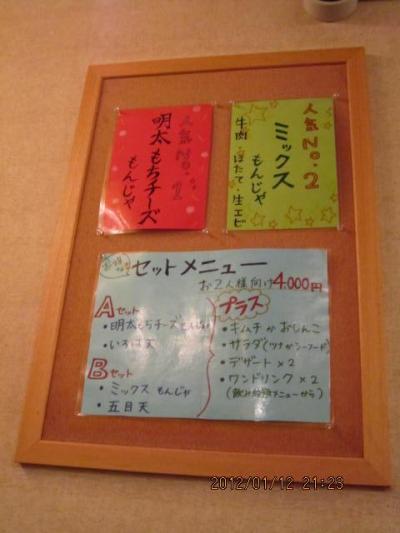 人気No.2
明太もちチーズ
もんじゃ
人気No.2
ミックス
もんじゃ
牛肉・ほたて・生エビ
お得な
セットメニュー
お2人様向け4.000円
Aセット
・明太もちチーズもんじゃ
・いろは天
Bセット
・ミックス もんじゃ
・五目天
プラス
・キムチかおしんこ
・サラダ(ツナかシーフード)
・デザート×2
・ワンドリンク×2
(飲み放題メニューから)
2012/01/12 21:23